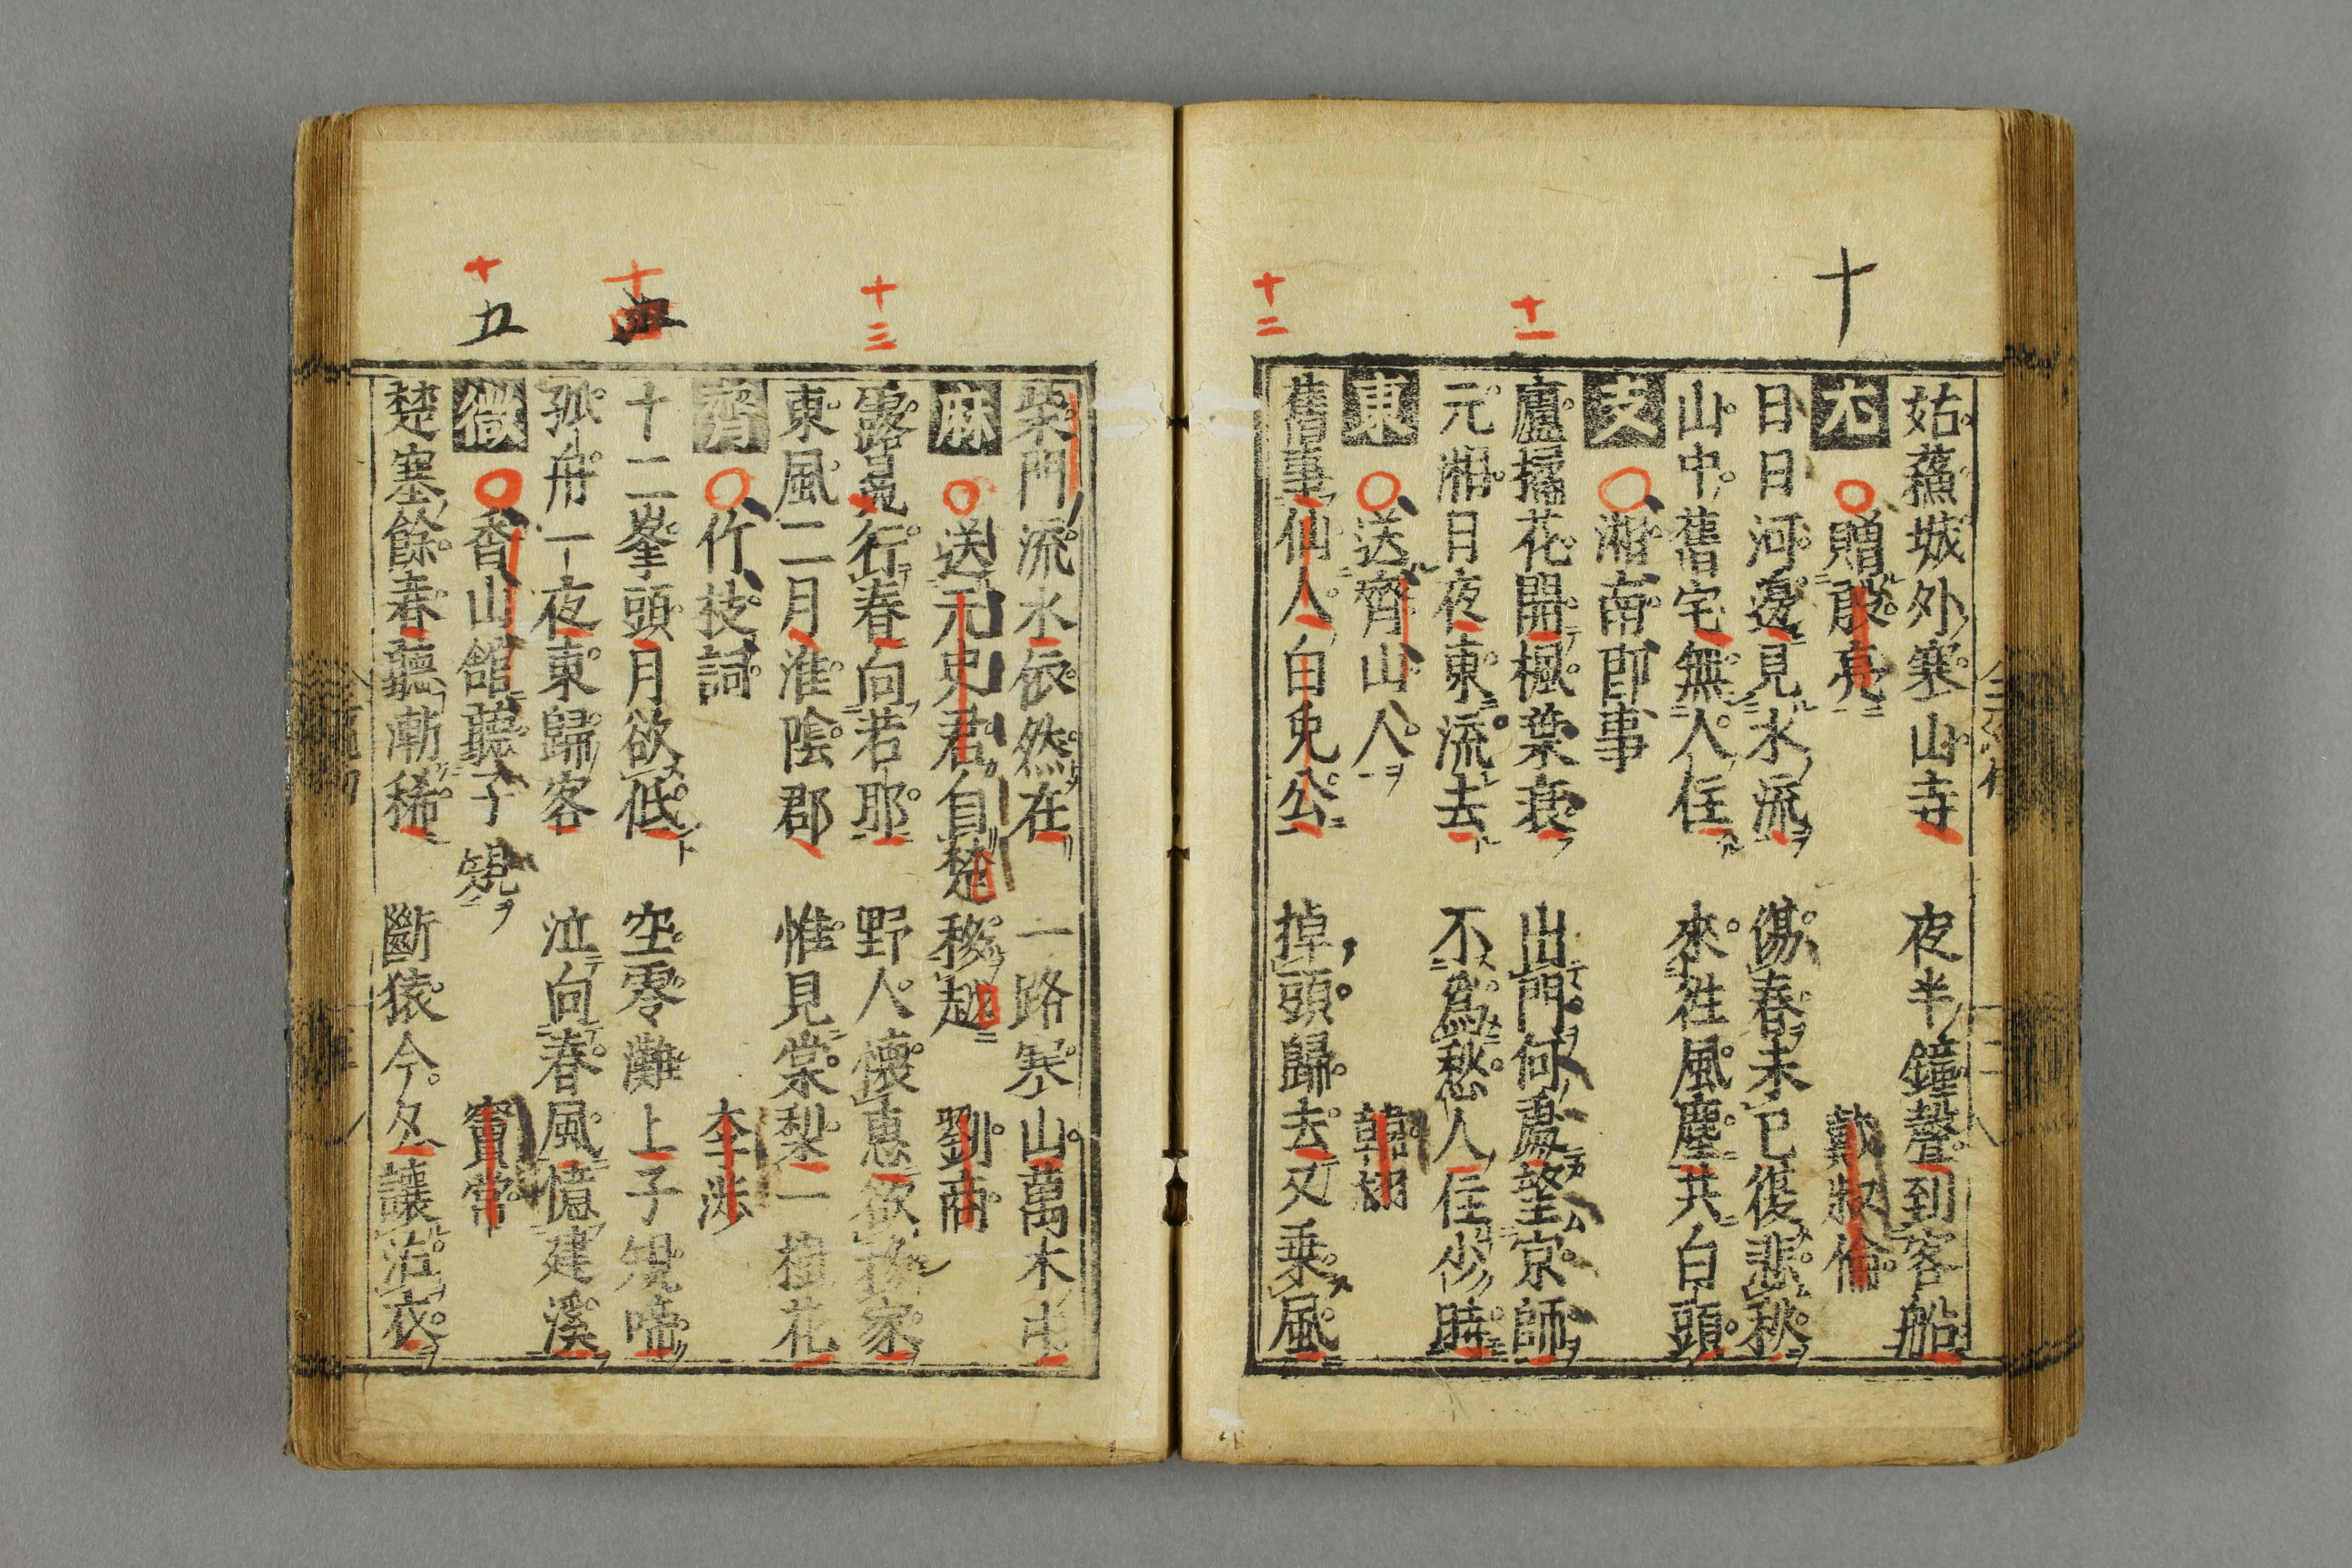 十
十一
十二
姑蘓城外寒山寺　夜半鐘聲到客船
尤　贈殷亮　戴叔倫
日日河邊見水流　傷春未已復悲秋
山中舊宅無人住　來往風塵共白頭
支　湘南即事
廬橘花開楓葉衰　出門何處望京師
元湘日夜東流去　不爲愁人住少時
東　送齊山人　韓翃
舊事仙人白兔公　掉頭歸去又乗風
十三
十四
十五
柴門流水依然在　一路寒山萬木中
麻　送元史君自楚移越　劉商
露冕行春向若耶　野人懷惠欲移家
東風二月淮陰郡　惟見棠梨一樹花
齊　竹枝詞　李渉
十二峯頭月欲低　空零灘上子規啼
孤舟一夜東歸客　泣向春風憶建溪
微　香山館聽子規　竇常
楚塞餘春聽漸稀　斷猿今夕讓沾衣